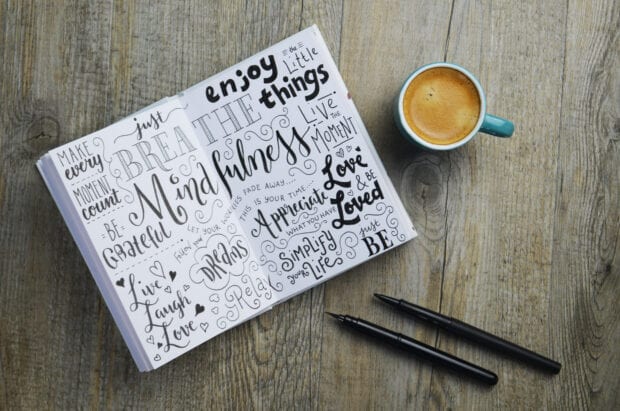 MAKE
every
MOMENT
count
just
BREATHE
Mindfulness
-BE-
Grateful
LET YOUR WORRIES FADE AWAY....
follow your
DREAMS
Relax
Live
Laugh
Love
enjoy
the Little
things
LIVE THE
MOMENT
THIS IS YOUR TIME...
Appreciate
WHAT YOU HAVE
Love
& BE
Loved
Simplify
your Life
just
BE